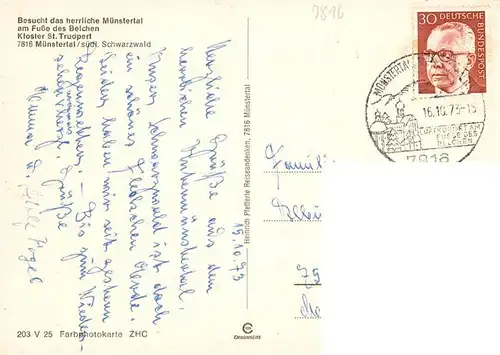 Besucht das herrliche Münstertal
am Fuße des Belchen
Kloster St. Trudpert
7816 Münstertal/südl. Schwarzwald
7816
30 DEUTSCHE
BUNDESPOST
MÜNSTERTAL
16.10.73-15
LUFTKURORT AM
FUSSE DES
BELCHEN
7816
15.10.73
Herzliche Grüße aus dem
herrlichen
Unser Schwarzwald ist doch
ein schönes Fleckchen Erde.
Leider haben wir seit gestern
Regenwetter. - Bis zum Wieder-
sehen Grüße
Hanna u.
Famili
Heinrich Pfefferle Reiseandenken, 7816 Münstertal
203 V 25 Farbphotokarte ZHC